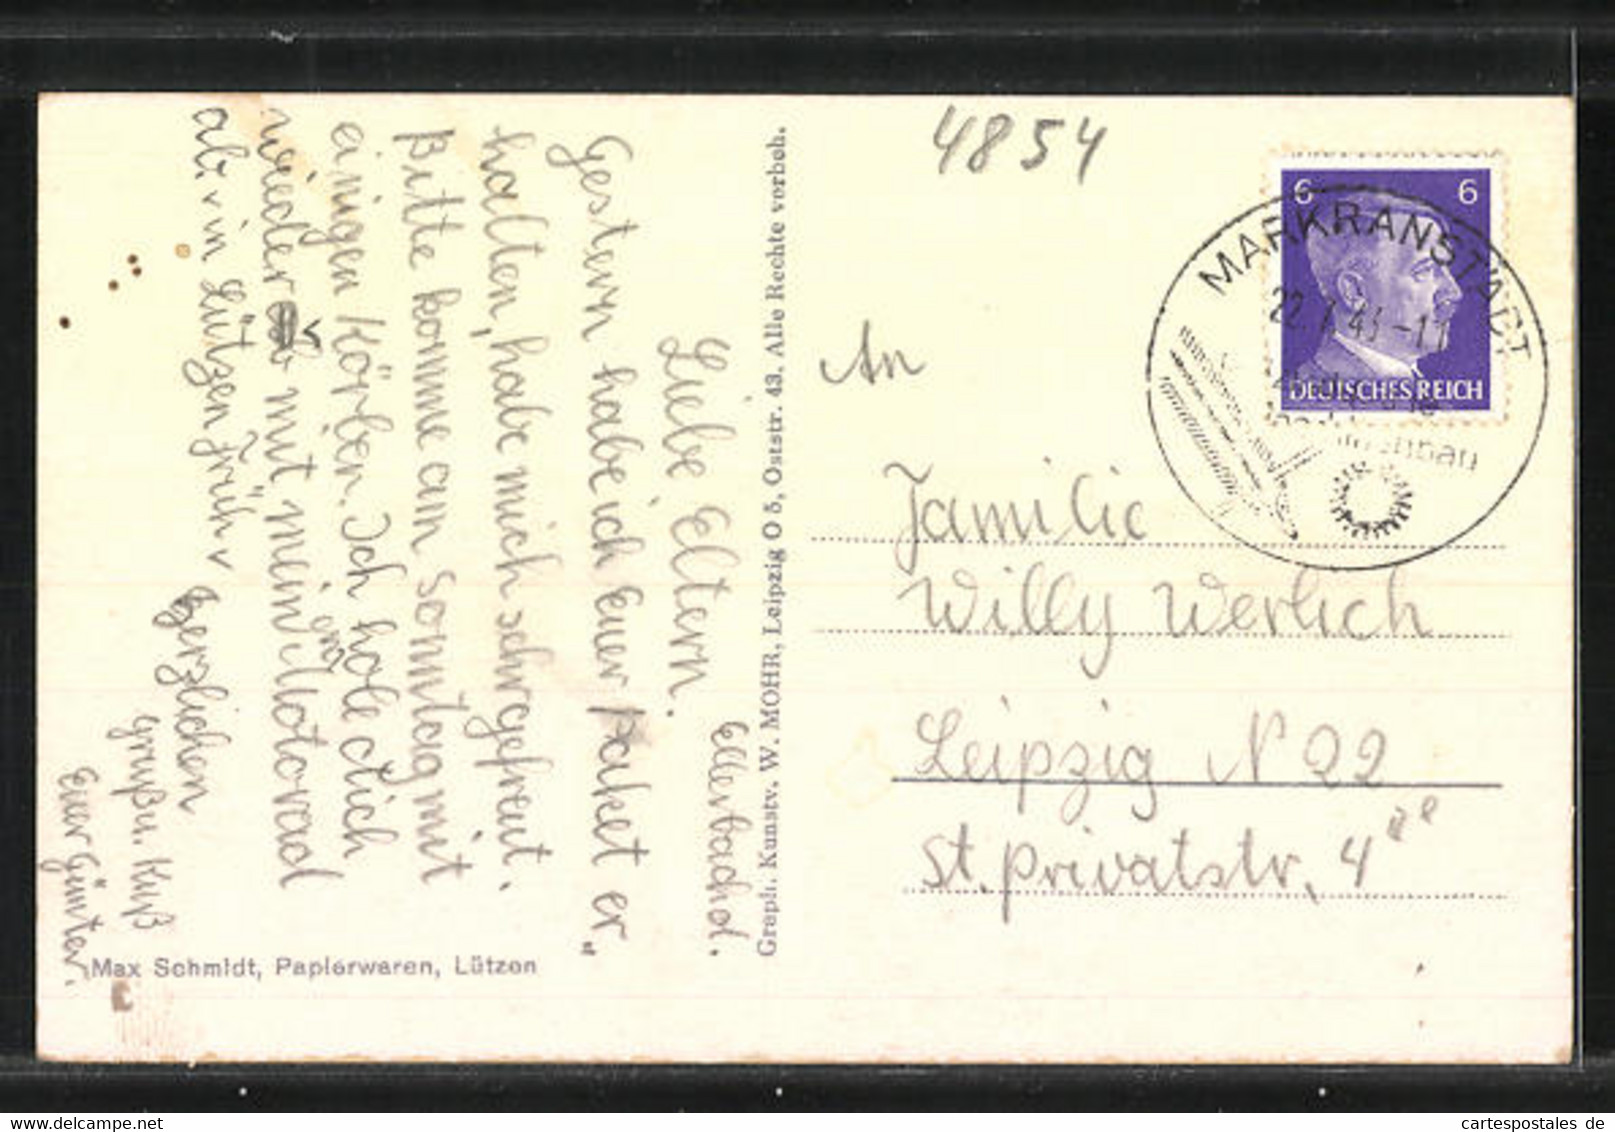 4854
6 6
DEUTSCHES REICH
MARKRANSTÄDT
22. 7. 43 - 11
An
Familie
Willy Werlich
Leipzig N 22
St. Privatstr. 4 II e
Graph. Kunstv. W. MOHR, Leipzig O 5, Oststr. 43. Alle Rechte vorbeh.
Ellerbach d.
Liebe Eltern.
Gestern habe ich Euer Paket er„
halten, habe mich sehr gefreut.
Bitte komme am Sonntag mit
einigen Körben. Ich hole dich
wieder mit meinem Motorad
ab, in Lützen Früh.
Herzlichen
Gruß u. Kuß
Euer Günter.
Max Schmidt, Papierwaren, Lützen
cartespostales de
www.delcampe.net